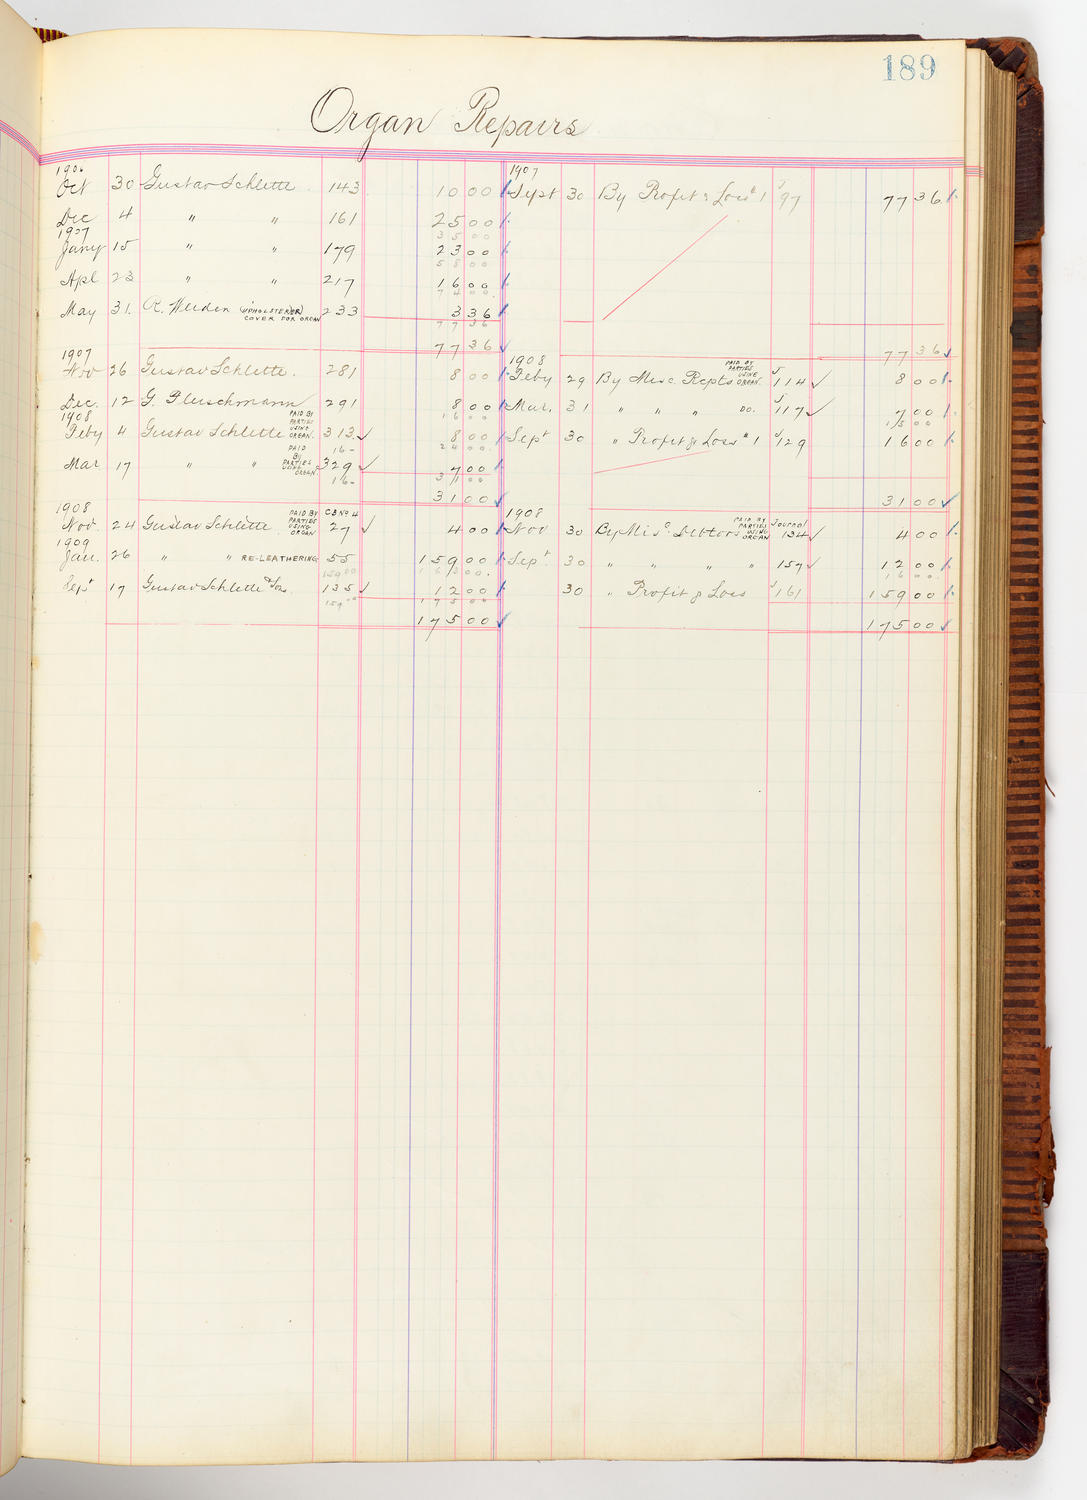 189
Organ Repairs
1906
Oct 30 Gustav Schlette 143 10 00
Dec 4 " " 161 25 00
35 00
1907
Jany 15 " " 179 23 00
58 00
Apl 23 " " 217 16 00
74 00
May 31. R. Weiden (UPHOLSTERER) COVER FOR ORGAN 233 3 36
77 36
77 36
1907
Sept 30 By Profit & Loss a/c 1 J 97 77 36
77 36
1907
Nov 26 Gustav Schlette. 281 8 00
Dec. 12 G. Fleischmann 291 8 00
16 00
1908
Feby 4 Gustav Schlette PAID BY PARTIES USING ORGAN. 313 8 00
16- 24 00
Mar 17 " " PAID BY PARTIES USING ORGAN. 329 7 00
16- 31 00
31 00
1908
Feby 29 By Misc. Repts PAID BY PARTIES USING ORGAN. J 114 8 00
Mar. 31 " " " DO. J 117 7 00
15 00
Sept 30 " Profit & Loss a/c 1 J 129 16 00
31 00
1908
Nov. 24 Gustav Schlette PAID BY PARTIES USING ORGAN CB No 4 27 4 00
1909
Jan. 26 " " RE-LEATHERING 55 159 00
159 00 163 00.
Sept 17 Gustav Schlette & Son. 135 12 00
159 00 175 00
175 00
1908
Nov 30 By Misc. Debtors PAID BY PARTIES USING ORGAN Journal 134 4 00
Sept. 30 " " " " 157 12 00
16 00.
30 " Profit & Loss J 161 159 00
175 00